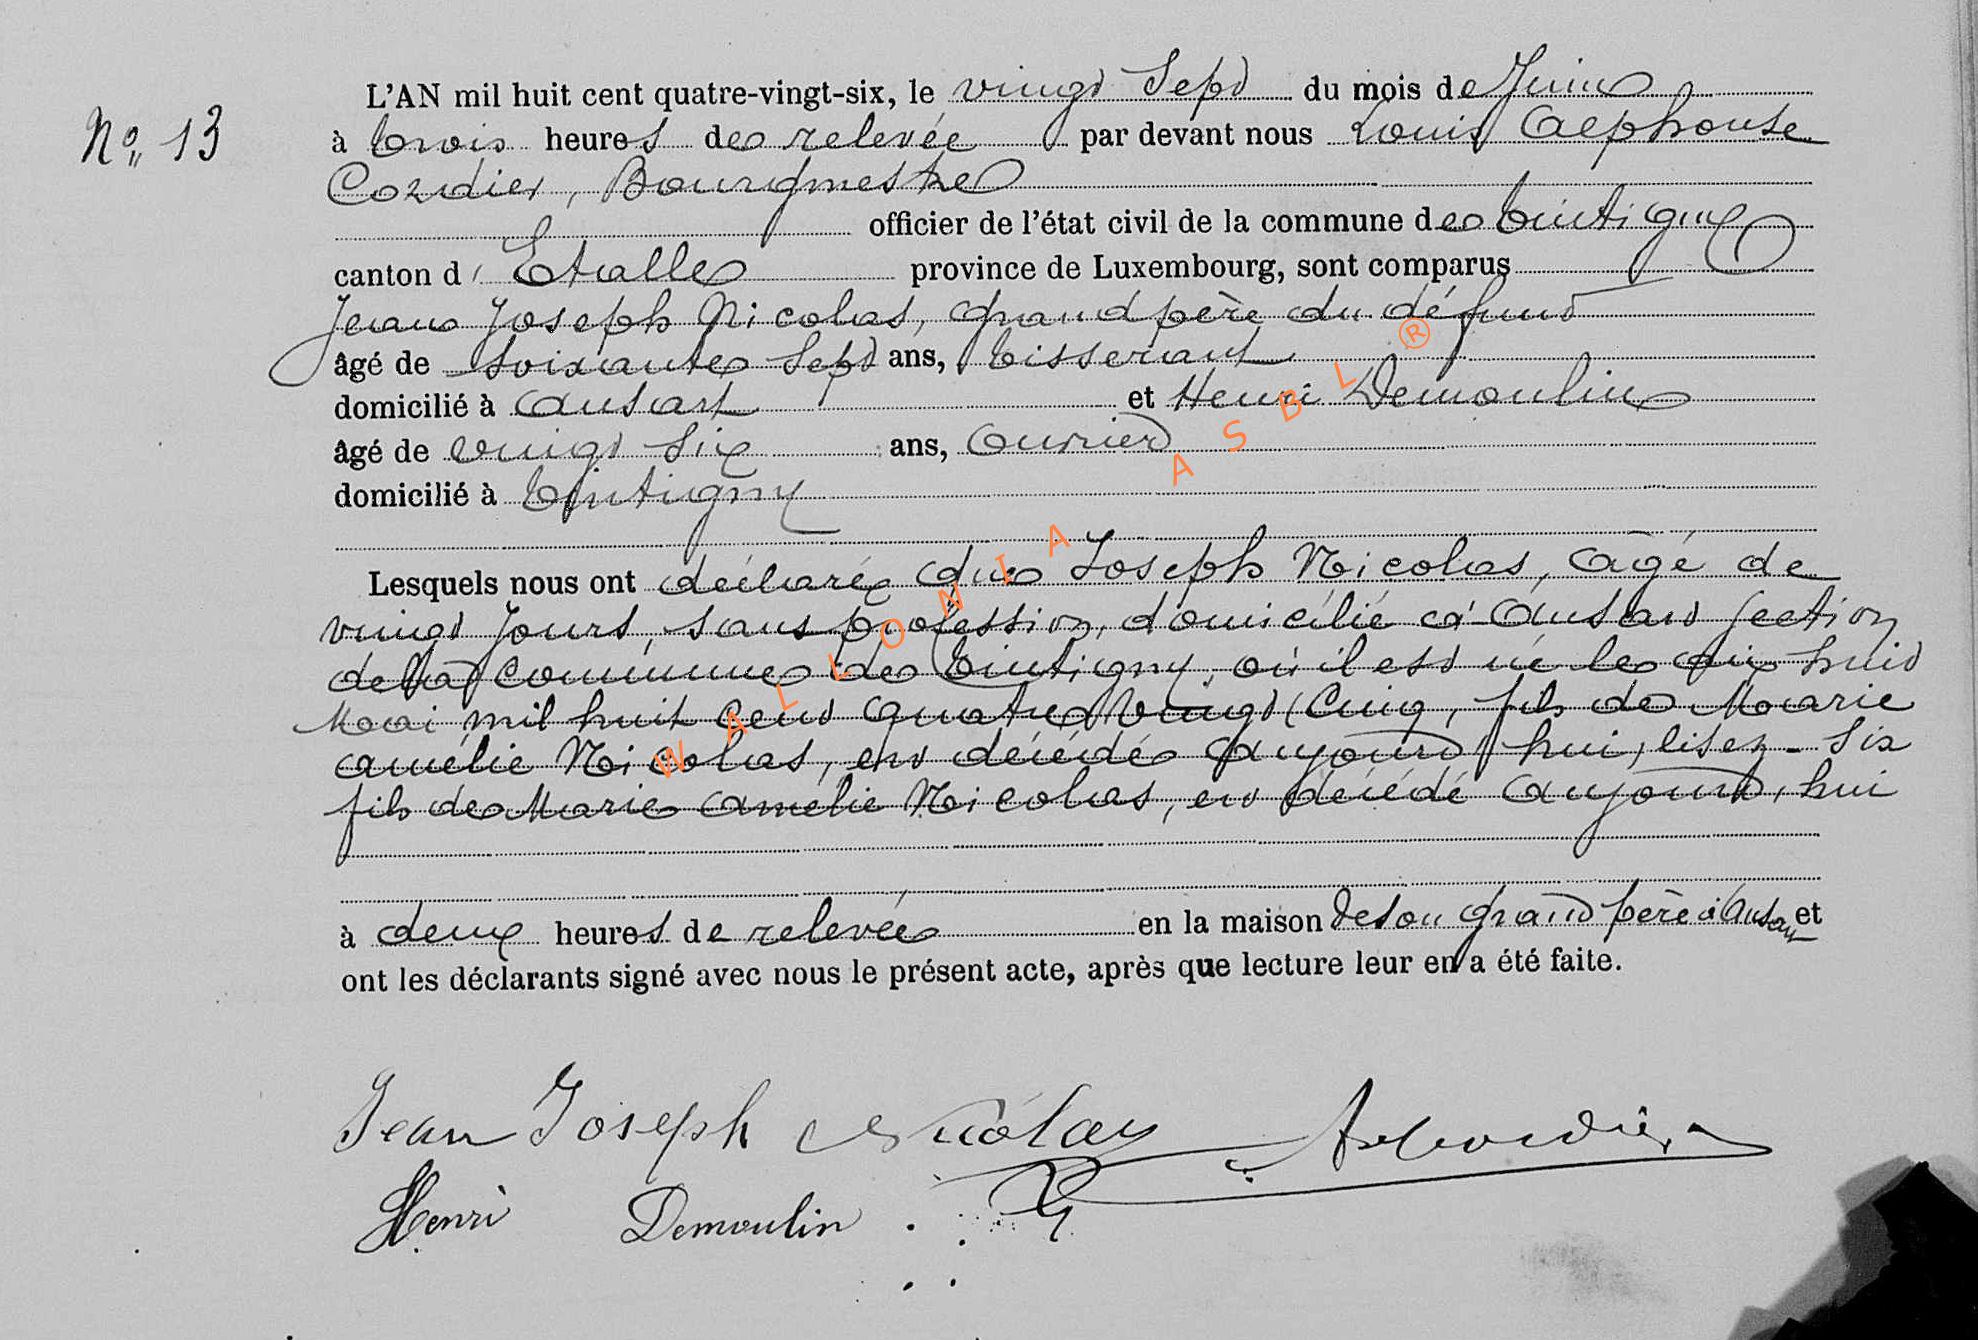 L'AN mil huit cent quatre-vingt-six, le vingt Sept du mois de Juin
No 13
à trois heures de relevée par devant nous Louis Alphonse
Cordier, Bourgmestre
officier de l'état civil de la commune de Tintigny
canton d' Etalle province de Luxembourg, sont comparus
Jean Joseph Nicolas, grand père du défunt
âgé de Soixante Sept ans, tisserant
domicilié à Ansart et Henri Demoulin
âgé de vingt Six ans, Ouvrier
domicilié à Tintigny
Lesquels nous ont déclaré que Joseph Nicolas, âgé de
vingt jours, sans profession, domicilié à Ansart section
de la commune de Tintigny, où il est né le dix huit
Mai mil huit cent quatre vingt Cinq, fils de Marie
Amélie Nicolas, est décédé aujourd'hui, lisez - Six
fils de Marie Amélie Nicolas, est décédé aujourd'hui
à deux heures de relevée en la maison de son grand père à Ansart et
ont les déclarants signé avec nous le présent acte, après que lecture leur en a été faite.
Jean Joseph Nicolas
Henri Demoulin
WALLONIA ASBL ®